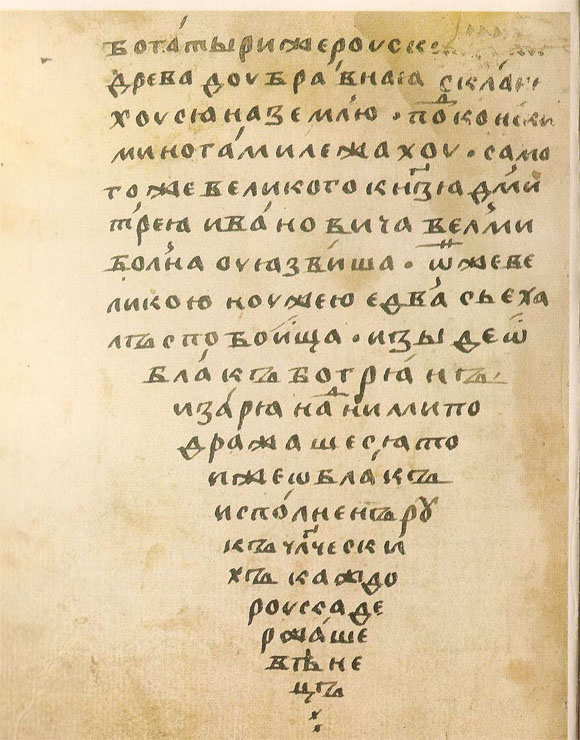 богатыри же роуск
древа доубравнаꙗ склан
хоусѧ на землю · пⷣо конски
ми ногами лежахоу · само
го же великого кн҃зѧ дми
треѧ ивановича велми
болна оуꙗзвиша · ѡн же ве
ликою ноужею едва сьеха
лъ с побоища · изыде ѡ
блакъ богрѧнъ
и зарѧ наⷣ ними по
дражашесѧ то
и же ѡблакъ
исполненъ рꙋ
къ чл҃чески
хъ каждо
роуска де
ржаше
вѣне
цъ